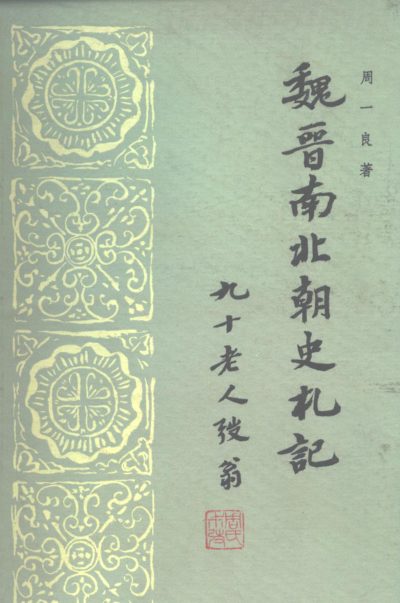 周一良著
魏晉南北朝史札記
九十老人弢翁